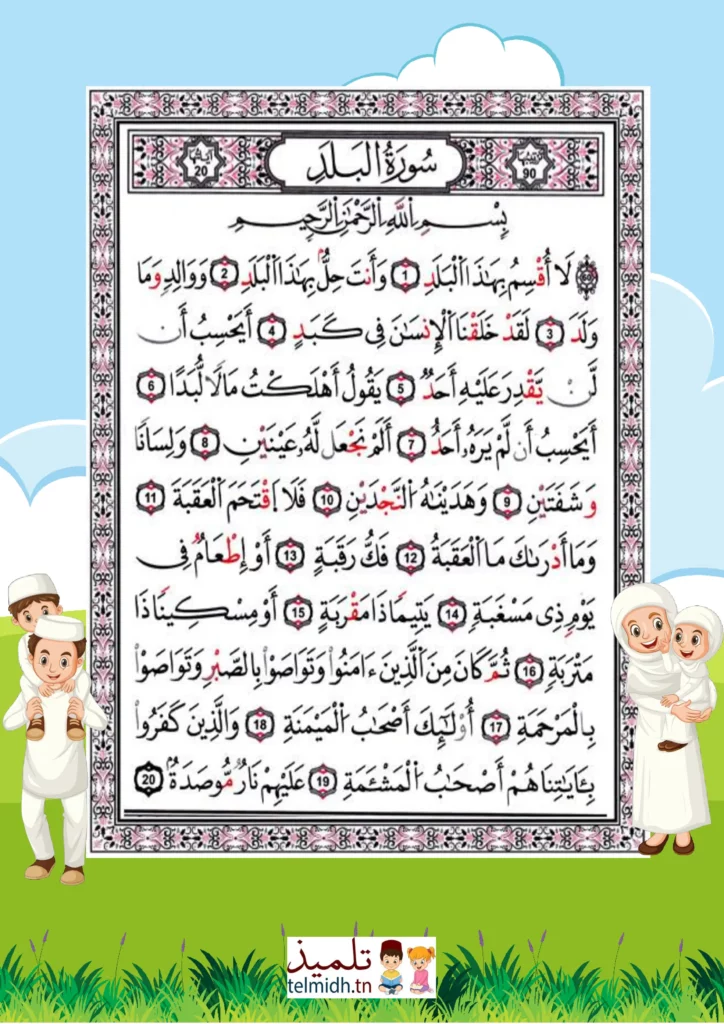 آياتها 20
سُورَةُ الْبَلَدِ
ترتيبها 90
بِسْمِ اللَّهِ الرَّحْمَٰنِ الرَّحِيمِ
لَا أُقْسِمُ بِهَٰذَا الْبَلَدِ 1 وَأَنتَ حِلٌّ بِهَٰذَا الْبَلَدِ 2 وَوَالِدٍ وَمَا
وَلَدَ 3 لَقَدْ خَلَقْنَا الْإِنسَٰنَ فِي كَبَدٍ 4 أَيَحْسِبُ أَن
لَّن يَّقْدِرَ عَلَيْهِ أَحَدٌ 5 يَقُولُ أَهْلَكْتُ مَالًا لُّبَدًا 6
أَيَحْسِبُ أَن لَّمْ يَرَهُ أَحَدٌ 7 أَلَمْ نَجْعَل لَّهُ عَيْنَيْنِ 8 وَلِسَانًا
وَشَفَتَيْنِ 9 وَهَدَيْنَٰهُ النَّجْدَيْنِ 10 فَلَا اقْتَحَمَ الْعَقَبَةَ 11
وَمَا أَدْرَىٰكَ مَا الْعَقَبَةُ 12 فَكُّ رَقَبَةٍ 13 أَوْ إِطْعَٰمٌ فِي
يَوْمٍ ذِي مَسْغَبَةٍ 14 يَتِيمًا ذَا مَقْرَبَةٍ 15 أَوْ مِسْكِينًا ذَا
مَتْرَبَةٍ 16 ثُمَّ كَانَ مِنَ الَّذِينَ ءَامَنُوا وَتَوَاصَوْا بِالصَّبْرِ وَتَوَاصَوْا
بِالْمَرْحَمَةِ 17 أُوْلَٰئِكَ أَصْحَٰبُ الْمَيْمَنَةِ 18 وَالَّذِينَ كَفَرُوا
بِـَٔايَٰتِنَا هُمْ أَصْحَٰبُ الْمَشْـَٔمَةِ 19 عَلَيْهِمْ نَارٌ مُّوصَدَةٌ 20
تلميذ
telmidh.tn